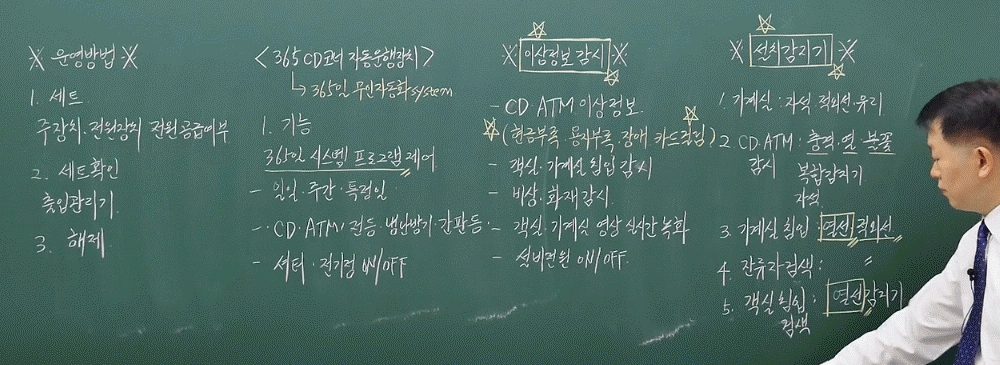 ※ 운영방법 ※
1. 세트
주장치·전원장치 전원공급여부
2. 세트확인
출입관리기
3. 해제
<365 CD코너 자동운행장치>
↳ 365일 무인자동화 system
1. 기능
365일 시스템 프로그램 제어
- 일일·주간·특정일
- CD·ATM, 전등 냉난방기·간판등
- 셔터·전기컴 ON/OFF
※ 이상정보 감시 ※
- CD ATM 이상정보
(현금부족 용지부족 장애 카드걸림)
- 객실·기계실 침입 감시
- 비상·화재 감시
- 객실·기계실 영상 실시간 녹화
- 설비전원 ON/OFF
※ 설치감지기 ※
1. 기계실 : 자석 적외선·유리
2. CD·ATM : 충격·열·불꽃
감시 복합감지기
자석
3. 기계실 침입 : 열선 적외선
4. 잔류자 검색 : 〃
5. 객실 침입 : 열선감지기
검색